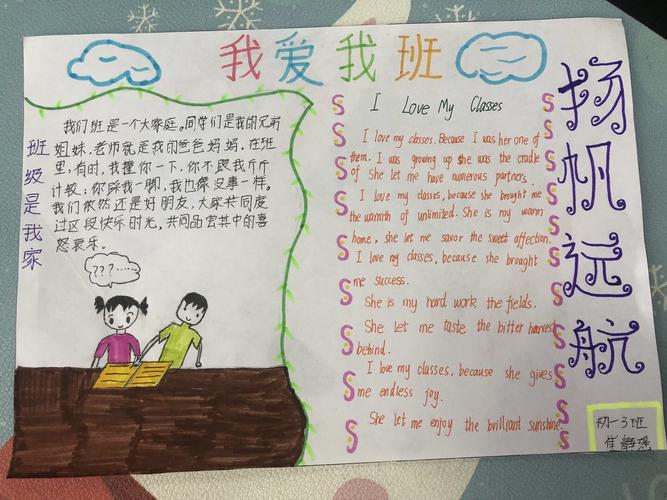 我爱我班
班级是我家
我们班是一个大家庭。同学们是我的兄弟
姐妹,老师就是我的爸爸妈妈,在班
里,有时,我撞你一下,你不跟我斤斤
计较;你踩我一脚,我也像没事一样。
我们依然还是好朋友,大家共同度
过这段快乐时光,共同品尝其中的喜
怒哀乐。
???......
I Love My Classes
I love my classes. Because I was her one of
them. I was growing up she was the cradle
of She let me have numerous partners.
I love my classes, because she brought me
the warmth of unlimited. She is my warm
home, she let me savor the sweet affection.
I love my classes, because she brought
me success.
She is my hard work the fields.
She let me taste the bitter harvest
behind.
I love my classes, because she gives
me endless joy.
She let me enjoy the brilliant sunshine.
扬帆远航
初一3班